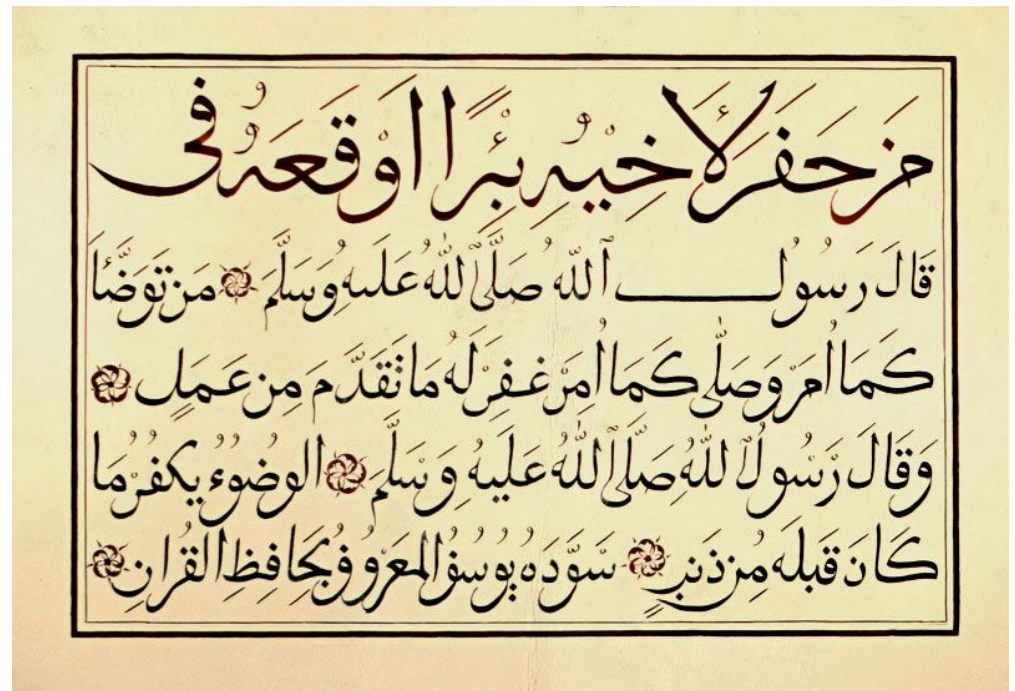 من حفر لأخيه بئرا اوقعه فى
قَالَ رَسُولُ ٱللّٰه صَلَّى ٱللّٰهُ عَلَيهِ وَسَلَّمَ مَن تَوَضَّأَ
كَمَا اُمِرَ وَصَلّٰى كَمَا اُمِرَ غُفِرَ لَهُ مَا تَقَدَّمَ مِن عَمَلٍ
وَقَالَ رَسُولُ اللّٰهِ صَلَّى ٱللّٰهُ عَلَيهِ وَسَلَّمَ الوضُوءُ يكفرُ مَا
كَانَ قَبلَه مِن ذَنبٍ سَوَّدَهُ يُوسُفُ المَعرُوفُ بِحَافِظِ القُرانِ